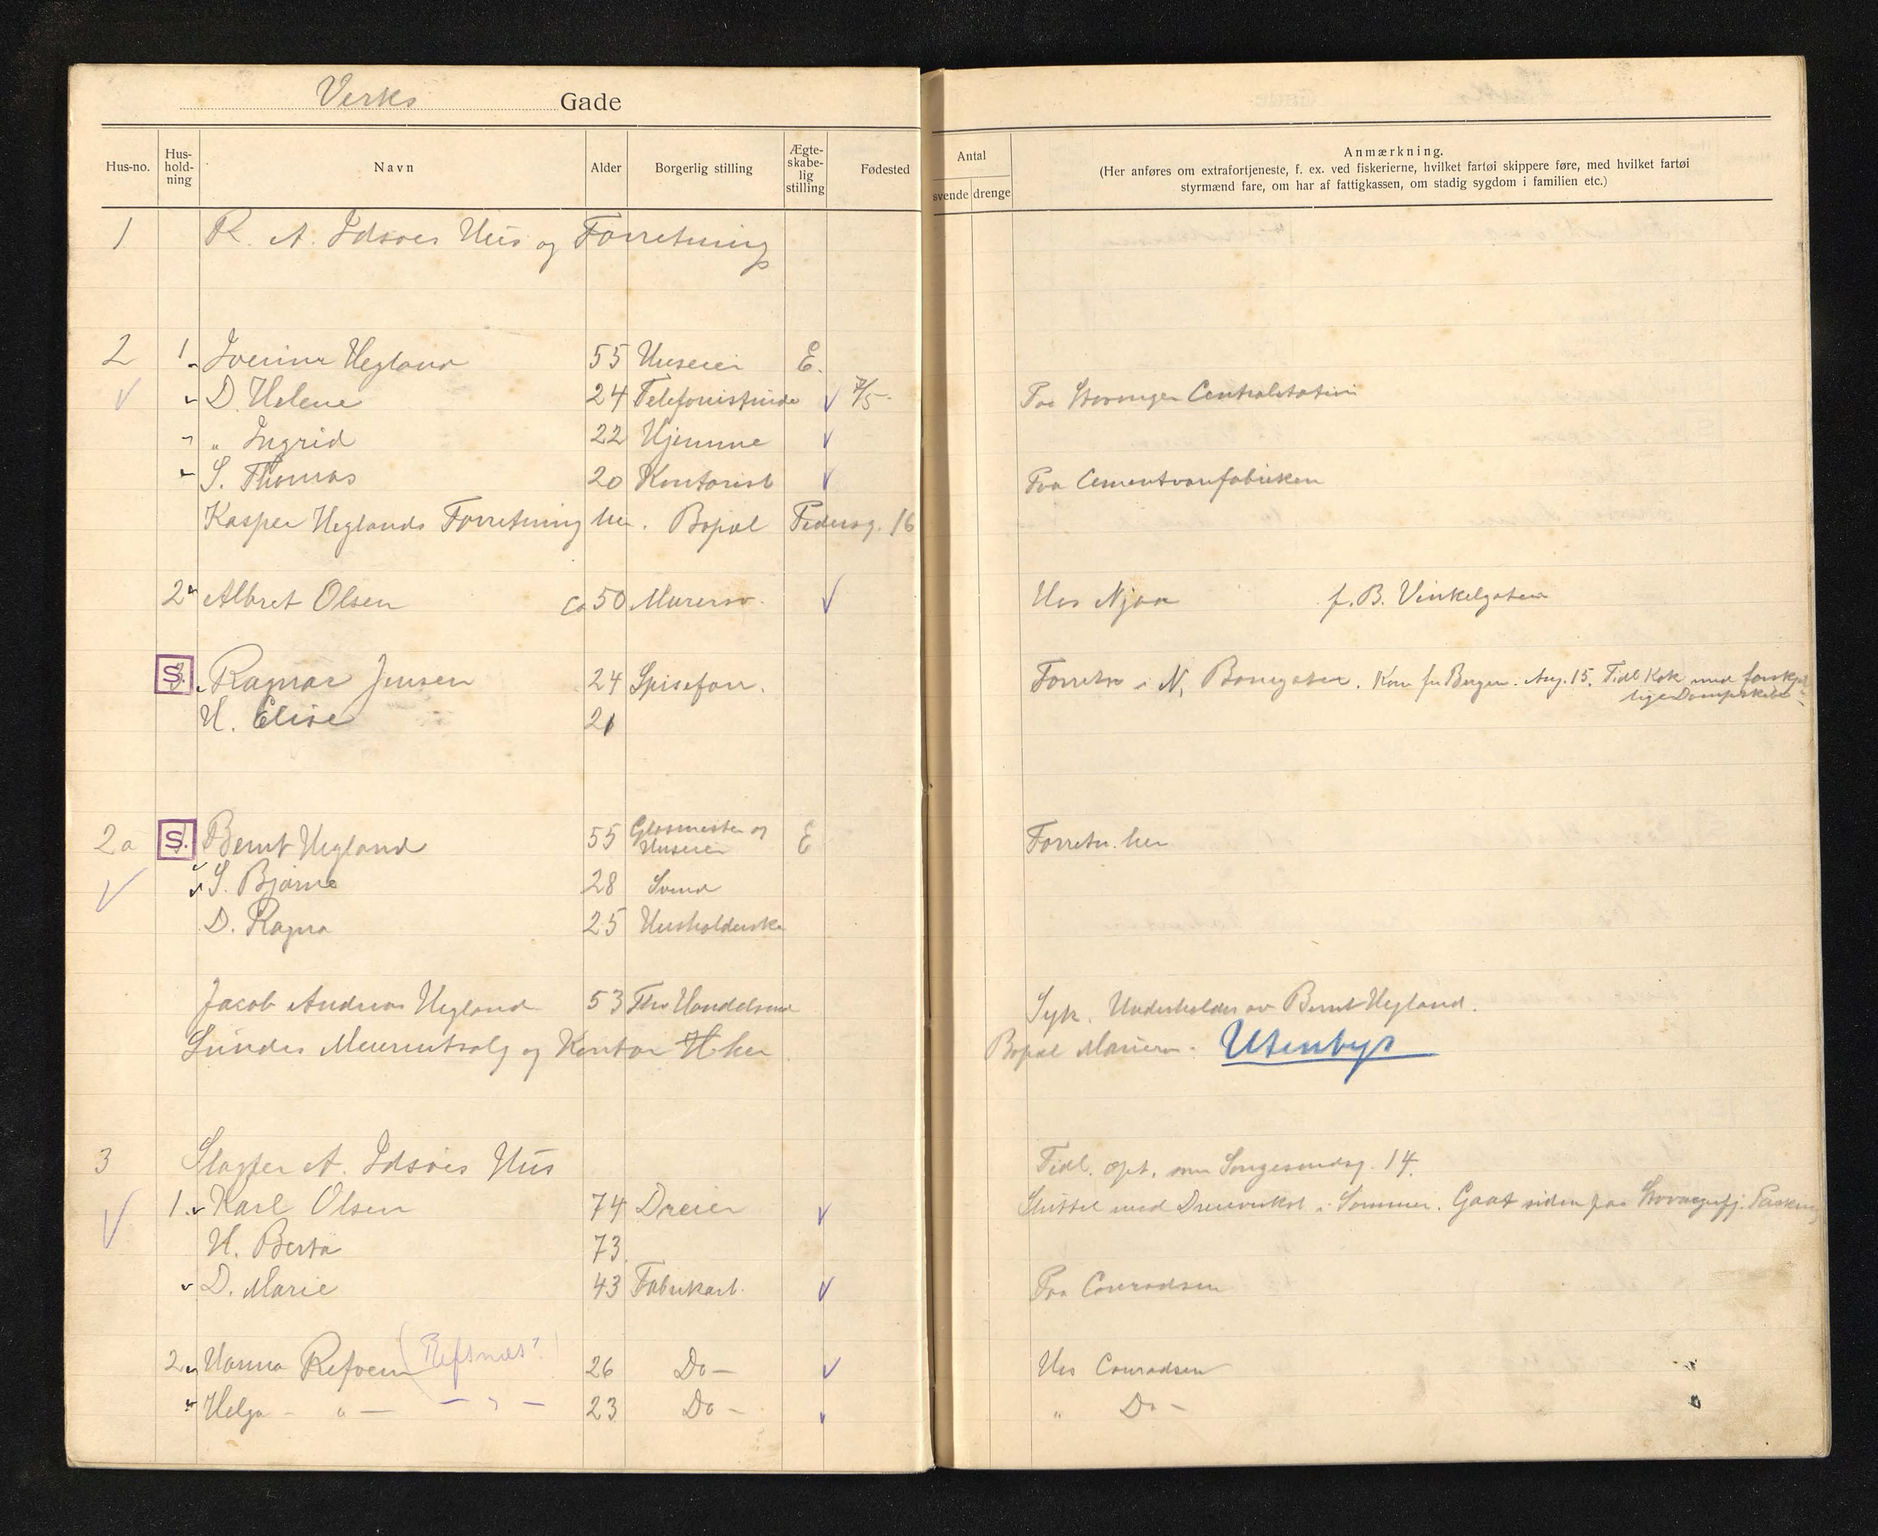 Verks Gade
Hus-no. Hus-hold-ning Navn Alder Borgerlig stilling Ægte-skabe-lig stilling Fødested
Antal
svende drenge
Anmærkning.
(Her anføres om extrafortjeneste, f. ex. ved fiskerierne, hvilket fartøi skippere føre, med hvilket fartøi
styrmænd fare, om har af fattigkassen, om stadig sygdom i familien etc.)
1 R. A. Idsøes Hus og Forretning
2 1 Hegland 55 Huseier E.
D. Helene 24 Telefonistinde 7/5 Paa Stavanger Centralstation
" Ingrid 22 Hjemme
S. Thomas 20 Kontorist Paa Cementvarefabriken
Kasper Heglands Forretning her. Bopæl Pedersg. 16
2 Albret Olsen ca 50 Murersv. Hos Njaa f. B. Vinkelgaten
S. Ragnar Jensen 24 Spiseforr. Forretn i N. Kom fr Bergen. Aug. 15. Tidl Kok med forskjel
lige Dampskibe
H. Elise 21
2a S. Bernt Hegland 55 Glasmester og
Huseier E Forretn. her
S. Bjarne 28 Svend
D. Ragna 25 Husholderske
Jacob Andreas Hegland 53 Handelsmd Syk. Underholdes av Bernt Hegland.
Lundes Meieriutsalg og Kontor her Bopæl Mariero. Utenbys
3 Slagter A. Idsøes Hus Tidl. opt. som Songesundsg. 14.
1. Karl Olsen 74 Dreier Sluttet med Dreierverkst i Sommer. Gaat siden paa
H. Berta 73
D. Marie 43 Fabrikarb. Paa Conradsen
2 Hanna Refven (Refsnæs?) 26 Do — Hos Conradsen
Helga — " — — " — 23 Do — " Do —